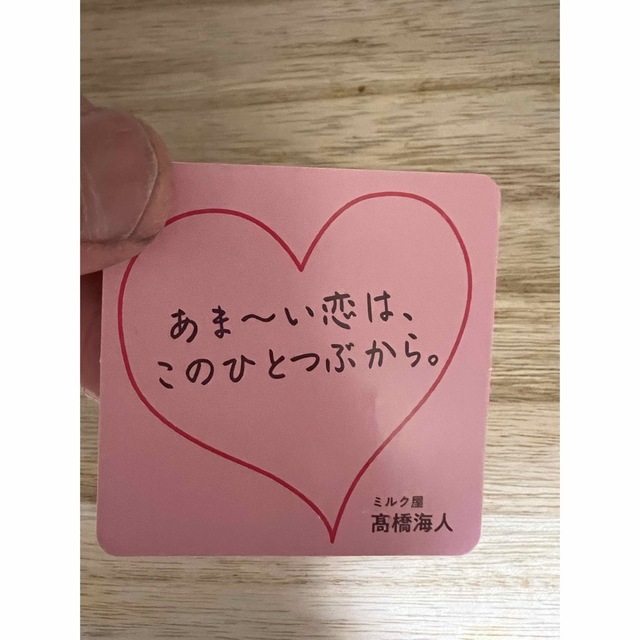 あま〜い恋は、
このひとつぶから。
ミルク屋
髙橋海人